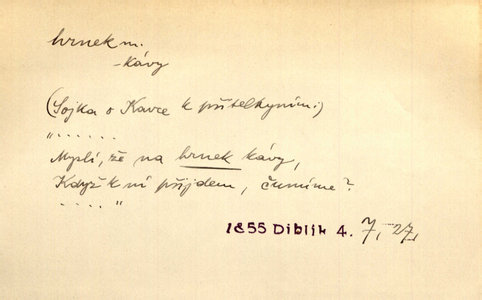 hrnek m.
- kávy
(Sojka o Kavce k přítelkyním:)
„......
Myslí, že na hrnek kávy,
Když k ní přijdem, čumíme?
...."
1855 Diblík 4. 7, 27,